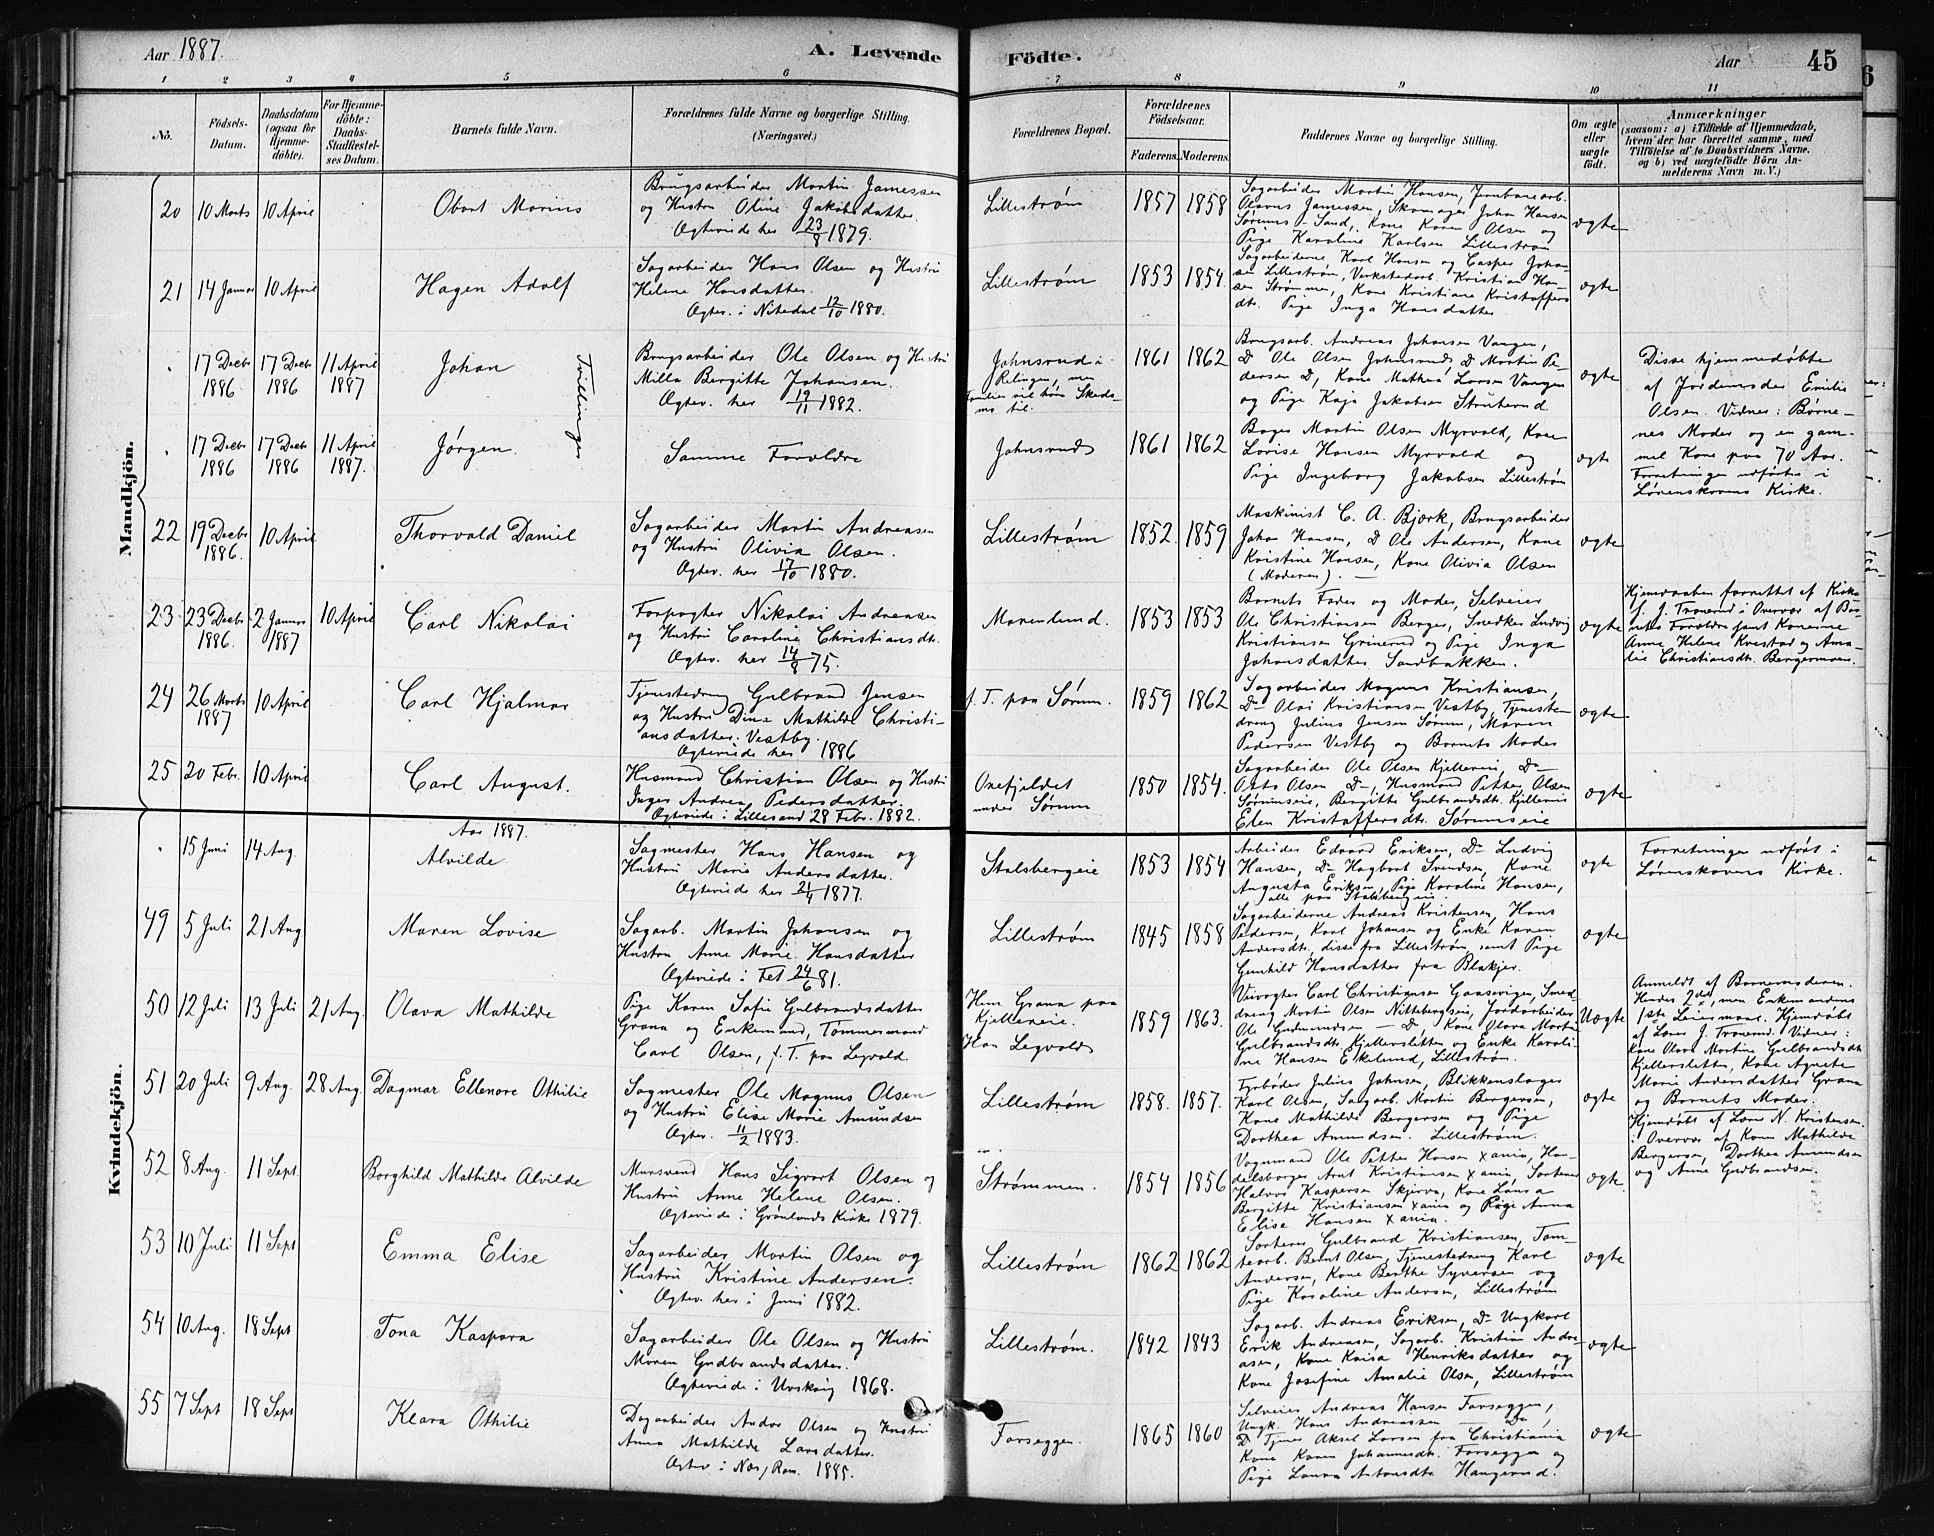 Aar 1887.
A. Levende Födte.
Aar 45
1 2 3 4 5 6 7 8 9 10 11
No.
Födsels-Datum.
Daabsdatum (ogsaa for Hjemmedöbte).
For Hjemmedöbte: Daabs-Stadfæstelses Datum.
Barnets fulde Navn.
Forældrenes fulde Navne og borgerlige Stilling. (Næringsvei.)
Forældrenes Bopæl.
Forældrenes Födselsaar.
Faderens. Moderens.
Faddernes Navne og borgerlige Stilling.
Om ægte eller uægte födt.
Anmærkninger
(saasom: a) i Tilfælde af Hjemmedaab, hvem der har forrettet samme, med Tilföielse af to Daabsvidners Navne, og b) ved uægtefödte Börn Anmelderens Navn m. V.)
Mandkjön.
20 10 Marts 10 April Obart Marius
Brugsarbeider Martin Jamessen
og Hustru Oline Jakobsdatter.
Ægteviede her 23/8 1879.
Lillestrøm 1857 1858
Sagarbeider Martin Hansen, Jernbanearb.
Olavus Jamessen, Skomager Johan Hansen
Sørums-Sand, Kone Karen Olsen og
Pige Karoline Karlsen Lillestrøm
ægte
21 14 Januar 10 April Hagen Adolf
Sagarbeider Hans Olsen og Hustru
Helene Hansdatter.
Ægtev. i Nitedal 12/10 1880.
Lillestrøm 1853 1854
Sagarbeiderne Karl Hansen og Casper Johansen
Lillestrøm, Verkstedarb. Kristian Hansen
Strømmen, Kone Kristiane Kristoffersdt.
Pige Inga Hansdatter
ægte
17 Decbr 1886 17 Decbr 1886 11 April 1887 Johan
Tvillinger
Brugsarbeider Ole Olsen og Hustru
Milla Bergitte Johansen.
Ægtev. her 19/11 1882.
Johnsrud i
Relingen, men
Familien vil høre Skedsmo
til.
1861 1862
Brugsarb. Andreas Johansen Vangen,
D Ole Olsen Johnsrud, D Martin Pedersen
D, Kone Mathea Larsen Vangen
og Pige Kaja Jakobsen Struterud.
ægte
Disse hjemmedøbte
af Jordemoder Emilie
Olsen. Vidner: Børnenes
Moder og en gammel
Kone paa 70 Aar.
Forretningen udførtes i
Lørenskovens Kirke.
17 Decbr 1886 17 Decbr 1886 11 April 1887. Jørgen
Samme Forældre
Johnsrud 1861 1862
Bager Martin Olsen Myrvold, Kone
Lovise Hansen Myrvold og
Pige Ingeborg Jakobsen Lillestrøm
ægte
22 19 Decbr 1886. 10 April Thorvald Daniel
Sagarbeider Martin Andreasen
og Hustru Olivia Olsen.
Ægtev. her 17/10 1880.
Lillestrøm 1852 1859
Maskinist C. A. Bjørk, Brugsarbeider
Johan Hansen, D Ole Andersen, Kone
Kristine Hansen, Kone Olivia Olsen
(Moderen). —
ægte
23. 23 Decbr 1886. 2 Januar 1887 10 April Carl Nikolai
Forpagter Nikolai Andreasen
og Hustru Caroline Christiansdt.
Ægtev. her 14/8 75.
Marenlund. 1853 1853
Barnets Fader og Moder, Selveier
Ole Christiansen Berger, Snedker Ludvig
Kristiansen Grinerud og Pige Inga
Johansdatter Sandbakken.
ægte
Hjemdaaben forrettet af Kirkes.
J. Tronerud i Overvær af Barnets
Forældre samt Konerne
Anne Helene Kvestad og Amalie
Christiansdt. Bergermoen.
24 26 Marts 1887 10 April Carl Hjalmar
Tjenestedreng Gulbrand Jensen
og Hustru Dina Mathilde Christiansdatter
Vestby.
Ægteviede her 1886
f. T. paa Sørum. 1859 1862
Sagarbeider Magnus Kristiansen,
D- Olai Kristiansen Vestby, Tjenestedreng
Julius Jensen Sørum, Maren
Pedersen Vestby og Barnets Moder
ægte
25 20 Febr. 10 April Carl August.
Husmand Christian Olsen og Hustru
Inger Andrea Pedersdatter.
Ægteviede i Lillesand 28 Febr. 1882.
Oxefjeldet
under Sørum
1850 1854.
Sagarbeider Ole Olsen Kjellereie, D-
Otto Olsen D-, Husmand Petter Olsen
Sørumseie, Bergitte Gulbrandsdt. Kjellereie
Elen Kristoffersdt. Sørumseie
ægte
Kvindekjön.
Aar 1887.
15 Juni 14 Aug. Alvilde
Sagmester Hans Hansen og
Hustru Marie Andersdatter.
Ægteviede her 21/4 1877.
Stalsbergeie 1853 1854
Arbeider Edvard Eriksen, D- Ludvig
Hansen, D- Hagbart Svendsen, Kone
Augusta Eriksen, Pige Karoline Hansen,
alle paa Stalsbergeie.
ægte
Forretningen udført i
Lørenskovens Kirke.
49 5 Juli 21 Aug Maren Lovise
Sagarb. Martin Johansen og
Hustru Anne Marie Hansdatter
Ægteviede i Fet 24/6 81.
Lillestrøm 1845 1858
Sagarbeiderne Andreas Kristensen, Hans
Pedersen, Karl Johansen og Enke Karen
Andersdt., disse fra Lillestrøm, samt Pige
Gunhild Hansdatter fra Blakjer.
ægte
50 12 Juli 13 Juli 21 Aug. Olava Mathilde
Pige Karen Sofie Gulbrandsdatter
Grana og Enkemand, Tømmermand
Carl Olsen, f. T. paa Legvold.
Hun Grana paa
Kjellereie.
Han Legvold
1859 1863.
Veivogter Carl Christiansen Gaasevigen, Smeddreng
Martin Olsen Nittebergseie, Jordarbeider
Ole Gudmundsen — D-, Kone Olava Martine
Gulbrandsdt. Kjellersletten og Enke Karoline
Hansen Ekelund, Lillestrøm.
Uægte
Anmeldt af Barnemoderen.
Hendes 2det, men Enkemandens
1ste Leiermaal. Hjemdøbt
af Lærer J. Tronerud. Vidner:
Kone Olava Martine Gulbrandsdt.
Kjellersletten, Kone Agnete
Marie Andersdatter Grana
og Barnets Moder.
51 20 Juli 9 Aug. 28 Aug. Dagmar Ellenore Othilie
Sagmester Ole Magnus Olsen
og Hustru Elise Marie Amundsen
Ægtev. 11/2 1883.
Lillestrøm 1858. 1857.
Fyrbøder Julius Johnsen, Blikkenslager
Karl Olsen, Sagarb. Martin Bergersen,
Kone Mathilde Bergersen og Pige
Dorthea Amundsen. Lillestrøm.
ægte
Hjemdøbt af Lærer N. Kristensen.
i Overvær af Konen Mathilde
Bergersen, Dorthea Amundsen
og Anne Gudbrandsen.
52 8 Aug. 11 Sept. Borghild Mathilde Alvilde
Mursvend Hans Sigvart Olsen og
Hustru Anne Helene Olsen.
Ægteviede i Grønlands Kirke 1879.
Strømmen. 1854 1856
Vognmand Ole Petter Hansen Xania, Handelsborger
Arnt Kristiansen Xania, Sorterer
Halvor Kaspersen Skjerva, Kone Lovisa
Bergitte Kristiansen Xania og Pige Anna
Elise Hansen Xania.
ægte.
53 10 Juli 11 Sept Emma Elise
Sagarbeider Martin Olsen og
Hustru Kristine Andersen.
Ægtev. her i Juni 1882.
Lillestrøm 1862 1862
Sorterer Gulbrand Kristiansen, Tomtearb.
Bernt Olsen, Tjenestedreng Karl
Andersen, Kone Berthe Syversen og
Pige Karoline Andersen, Lillestrøm
ægte
54 10 Aug. 18 Sept Tona Kaspara
Sagarbeider Ole Olsen og Hustru
Maren Gudbrandsdatter.
Ægteviede i Urskoug 1868.
Lillestrøm. 1842 1843
Sagarb. Andreas Eriksen, D- Ungkarl
Erik Andreasen, Sagarb. Kristian Andreasen,
Kone Kaisa Henriksdatter og
Kone Josefine Amalie Olsen, Lillestrøm
ægte
55 7 Sept 18 Sept Klara Othilie
Dagarbeider Andor Olsen og Hustru
Anna Mathilde Larsdatter.
Ægtev i Næs, Rom. 1885.
Farseggen. 1865 1860
Selveier Andreas Hansen Farseggen,
Ungk. Hans Andreassen — D-,
D Tjener Aksel Larsen fra Christiania
Kone Karen Johannesdt. Farseggen og
Pige Laura Antonsdt. Haugerud.
ægte